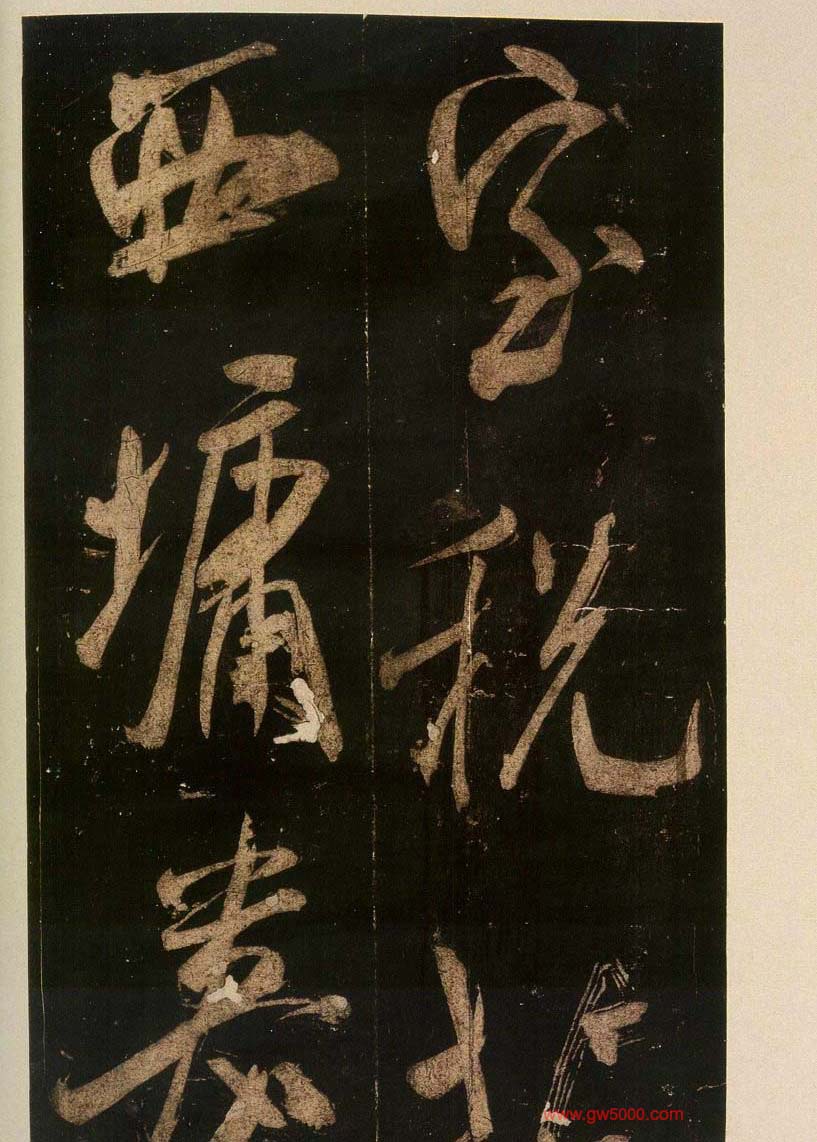 室税
西墉
www.gw5000.com